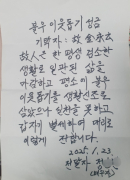 불우 이웃돕기 성금
기탁자: 故 金永洙
故人은 한 평생 검소한
생활로 일관된 삶을
마감하고 평소의 불우
이웃돕기를 생활신조로
삼았으나 실천을 못하고
갑자기 별세하여 대신
이렇게 전합니다.
2025. 1. 23
전달자 정